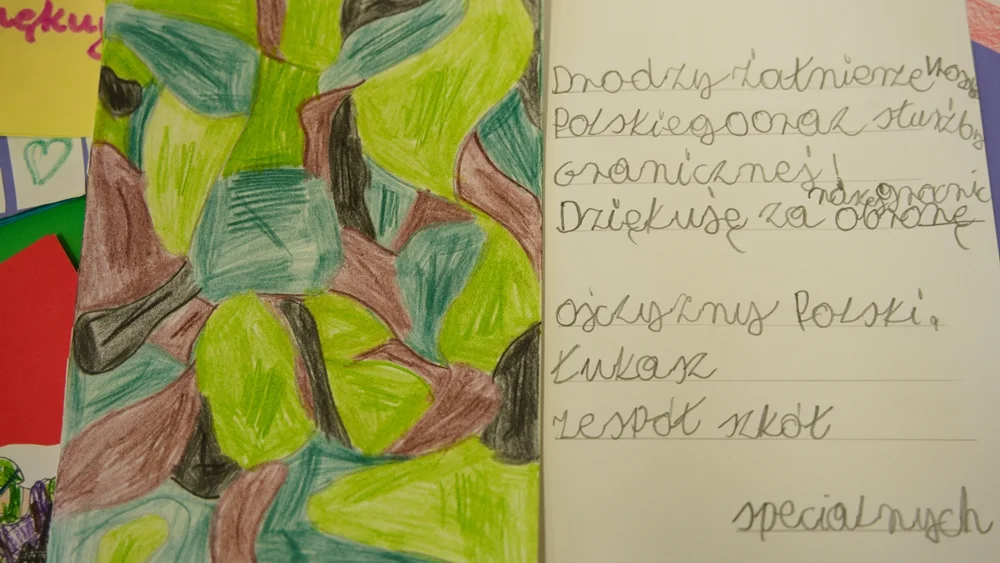 ziękuj
Drodzy żołnierze Wojska
Polskiego oraz służby
granicznej!
naszej granic
Dziękuję za obronę
ojczyzny Polski.
Łukasz
zespół szkół
specialnych